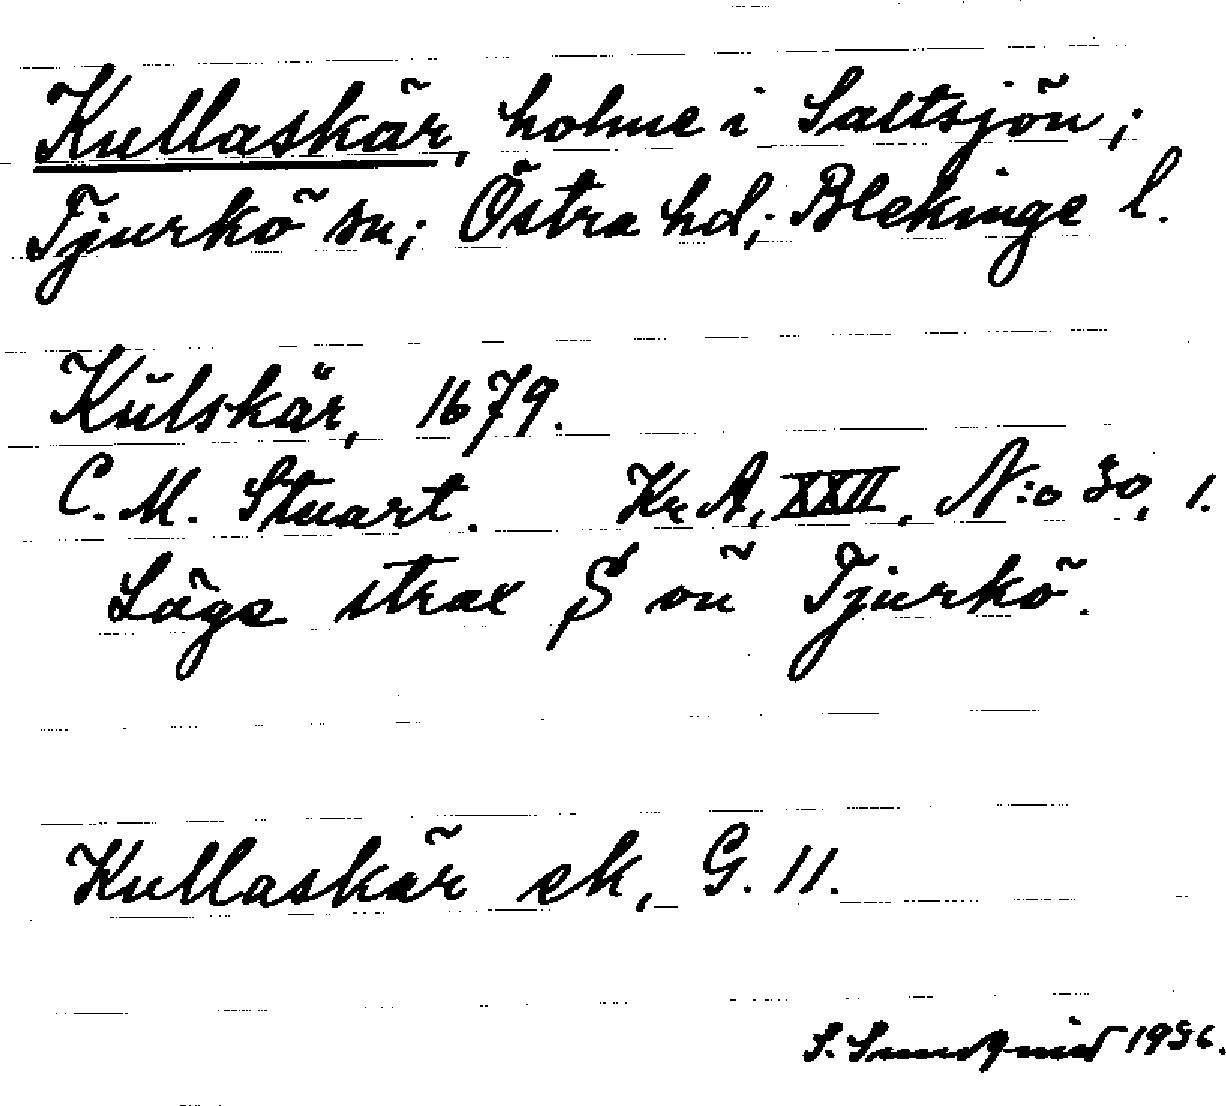 Kullaskär, holme i Saltsjön;
Tjurkö sn; Östra hd; Blekinge l.
Kůlskär, 1679.
C. M. Stuart. Kr A, XXII, N:o 30, 1.
Läge strax S om Tjurkö.
Kullaskär ek, G. 11.
S. Sundqvist 1956.